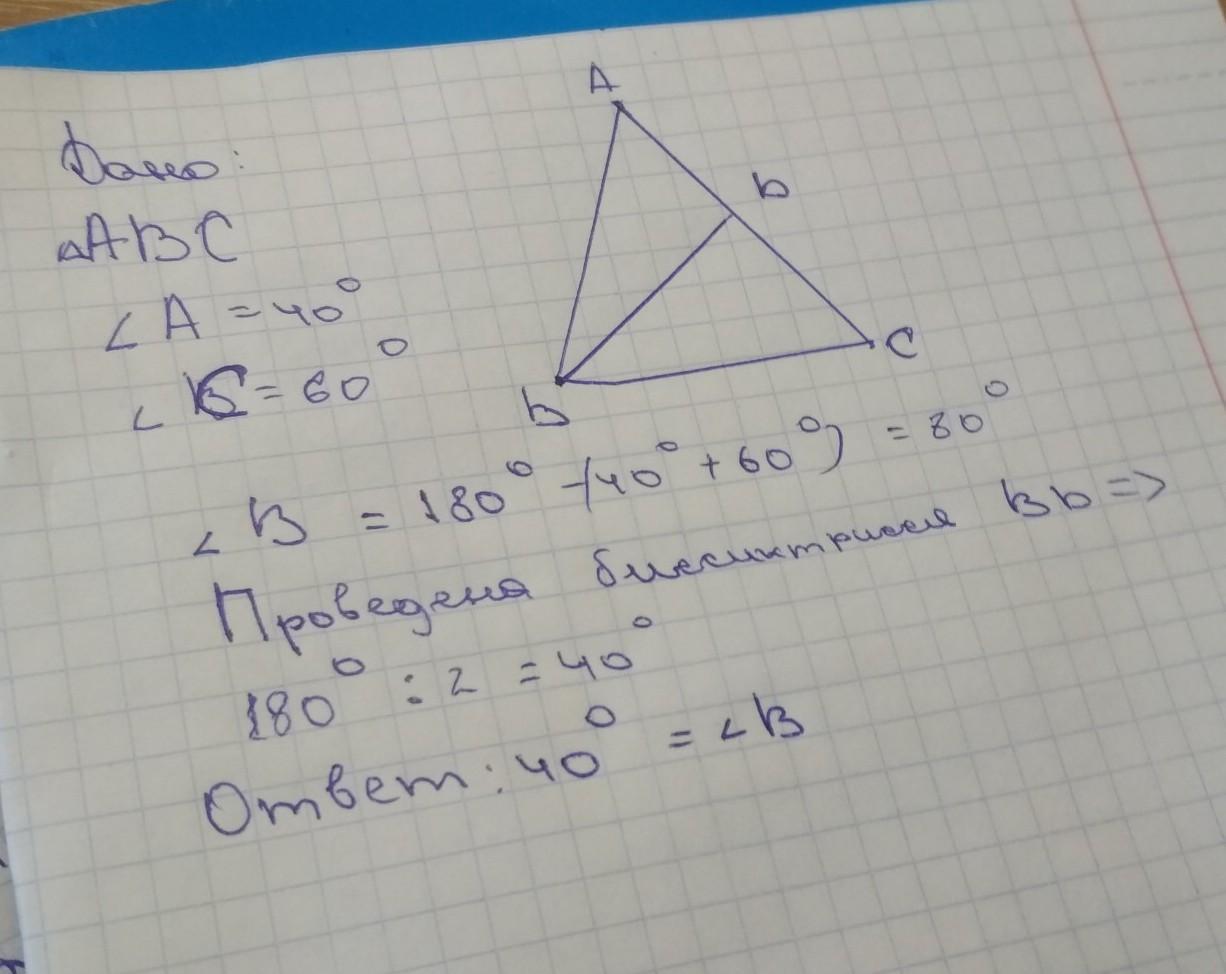 Дано:
A
△ABC
b
∠A = 40°
C
∠C = 60°
b
∠B = 180° - (40° + 60°) = 80°
Проведена биссиктрисся Bb =>
180° : 2 = 40°
Ответ: 40° = ∠B